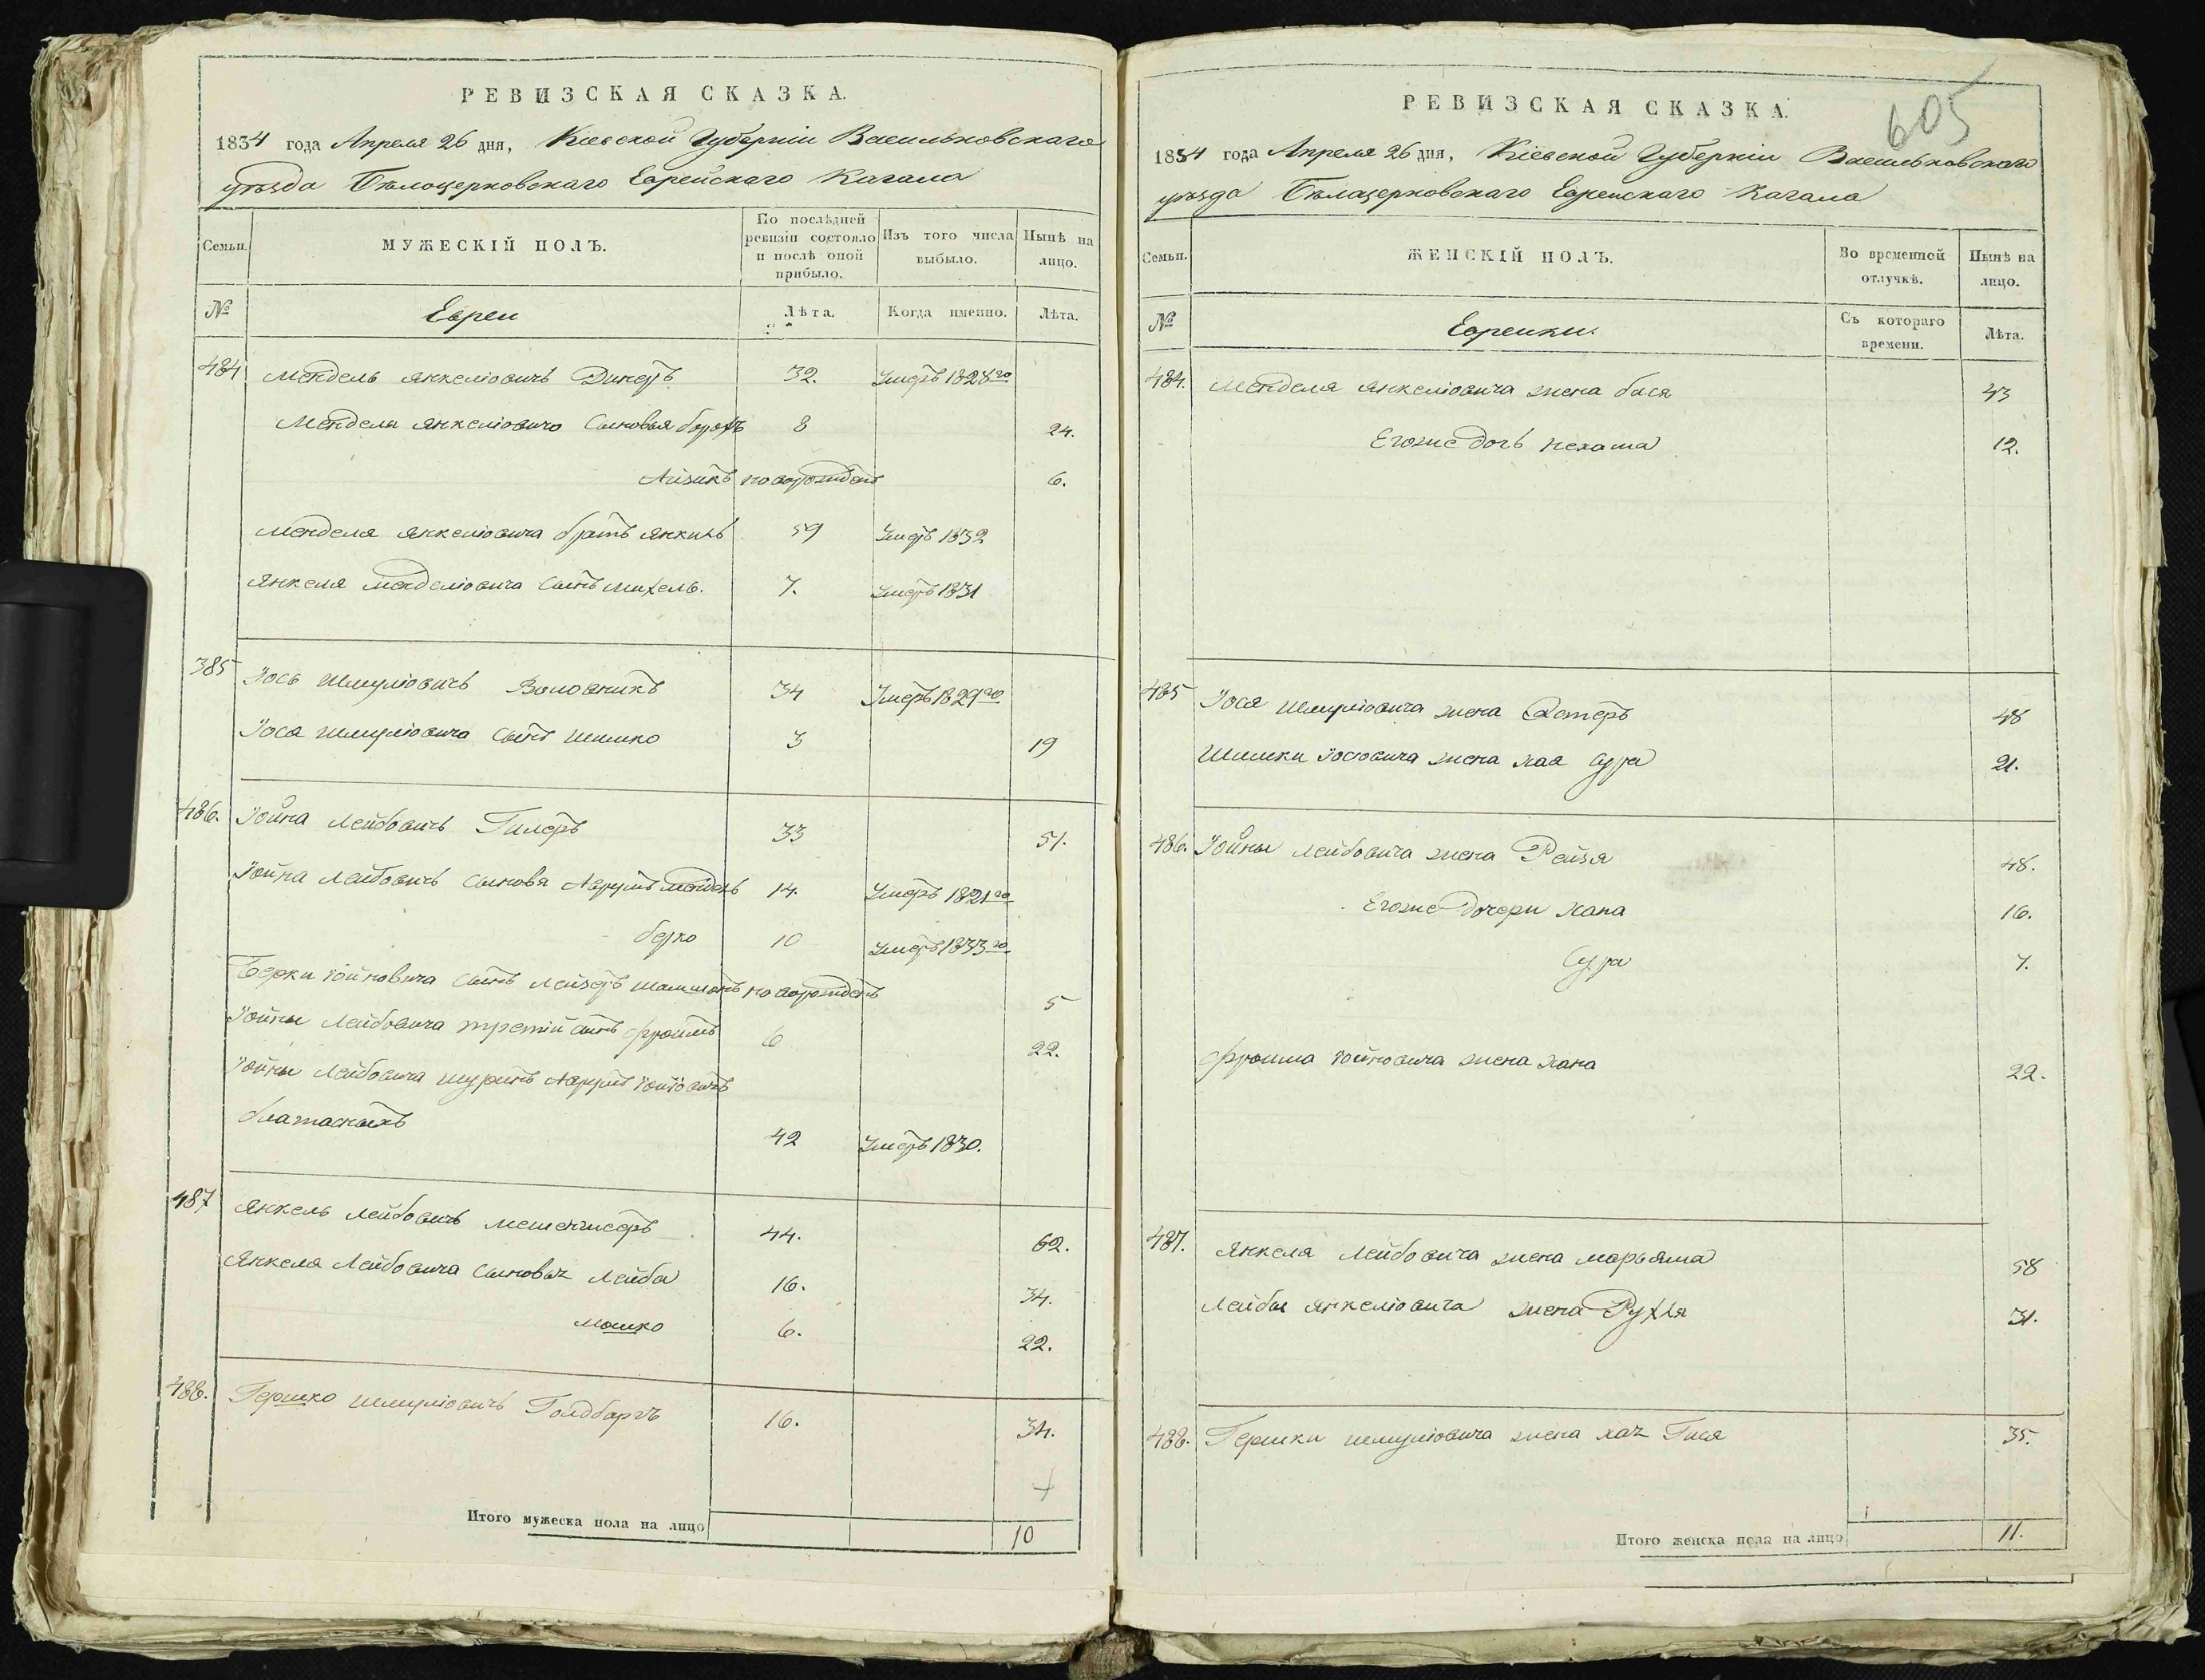 РЕВИЗСКАЯ СКАЗКА.
1834 года Апреля 26 дня, Кіевской Губерніи Васильковскаго
уѣзда Бѣлоцерковскаго Еврейскаго Кагала
Семьи.
МУЖЕСКІЙ ПОЛЪ.
По послѣдней ревизіи состояло и послѣ оной прибыло.
Изъ того числа выбыло.
Нынѣ на лицо.
№
Евреи
Лѣта.
Когда именно.
Лѣта.
484 Мендель Янкеліовичъ Динеръ 32. Умеръ 1828го
Менделя Янкеліовича Сыновья борохъ 8 24.
Айзикъ новорожденъ 6.
Менделя Янкеліовича братъ Янкиль 59 Умеръ 1832
Янкеля Менделіовича Сынъ Михель. 7. Умеръ 1831
385 Іось Шмуліовичъ Воловникъ 34 Умеръ 1829го
Іося Шмуліовича Сынъ Шимко 3 19
486. Іойна Лейбовичъ Гилеръ 33 51.
Іойна Лейбовичъ Сыновя Аврумъ Мендель 14. Умеръ 1821го
берко 10 Умеръ 1833го
Берки Іойновича Сынъ Лейзеръ новорожденъ 5
Іойны Лейбовича третій Сынъ Фроимъ 6 22.
Іойны Лейбовича шуринъ Аврумъ
42 Умеръ 1830.
487 Янкель Лейбовичъ 44. 62.
Янкеля Лейбовича Сыновья Лейба 16. 34.
Мошко 6. 22.
488. Гершко Шмуліовичъ Голдбаргъ 16. 34.
Итого мужеска пола на лицо 10
605
РЕВИЗСКАЯ СКАЗКА.
1834 года Апреля 26 дня, Кіевской Губерніи Васильковскаго
уѣзда Бѣлацерковскаго Еврейскаго Кагала
Семьи.
ЖЕНСКІЙ ПОЛЪ.
Во временной отлучкѣ.
Нынѣ на лицо.
№
Еврейки.
Съ котораго времени.
Лѣта.
484. Менделя Янкеліовича жена бася 43
Егоже дочь Нехама 12.
485 Іося Шмуліовича жена Эстеръ 48
Шимки Іосіовича жена Хая Сура 21.
486. Іойны Лейбовича жена Рейзя 48.
Егоже Дочери Хана 16.
Сура 7.
Фроима Іойновича жена Хана 22.
487. Янкеля Лейбовича жена Марьяма 58
Лейбы Янкеліовича жена Рухля 31.
488. Гершки Шмуліовича жена Хая Гися 35.
Итого женска пола на лицо 11.